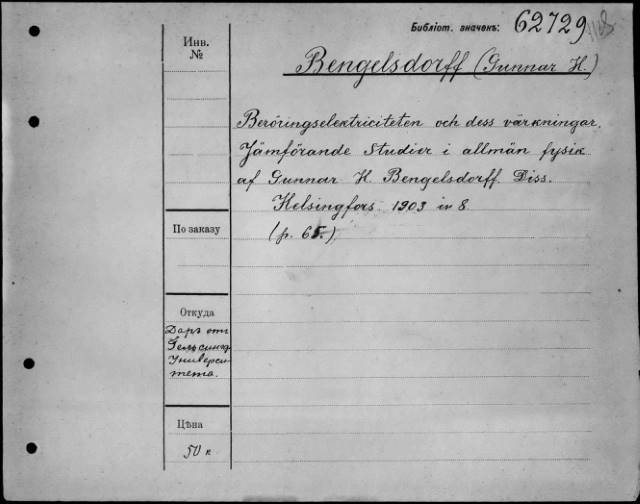 Библіот. значекъ: 62729
Инв. №
Bengelsdorff (Gunnar H.)
Beröringselektriciteten och dess värkningar.
Jämförande Studier i allmän fysik
af Gunnar H. Bengelsdorff. Diss.
Helsingfors. 1903 in 8.
(p. 65.)
По заказу
Откуда
Даръ отъ
Гельсингф.
Универси-
тета.
Цѣна
50 к